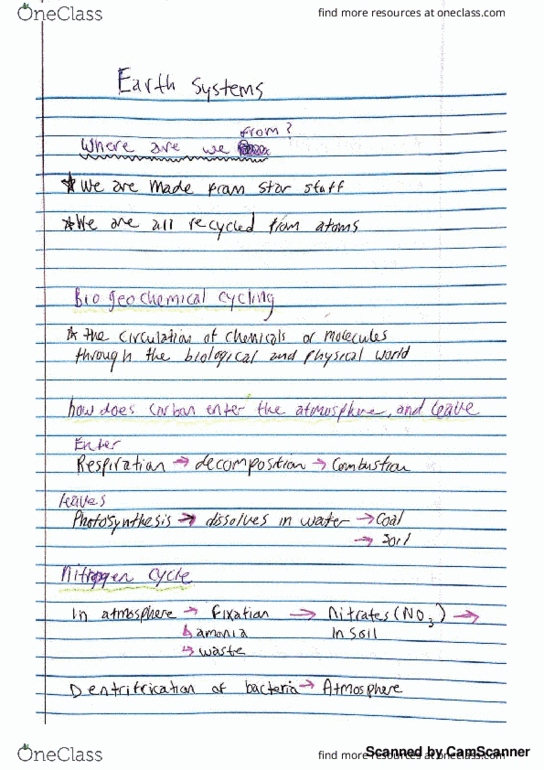 OneClass
find more resources at oneclass.com
Earth Systems
from?
Where are we
★ We are made from star stuff
★ We are all recycled from atoms
Biogeochemical cycling
★ the circulation of chemicals or molecules
through the biological and physical world
how does carbon enter the atmosphere, and leave
Enter
Respiration → decomposition → Combustion
leaves
Photosynthesis → dissolves in water → Coal
→ Soil
Nitrogen cycle
In atmosphere → Fixation → Nitrates (NO3) →
↳ amonia In Soil
↳ waste
Dentrifrication of bacteria → Atmosphere
OneClass
find more resources at oneclass.com
Scanned by CamScanner